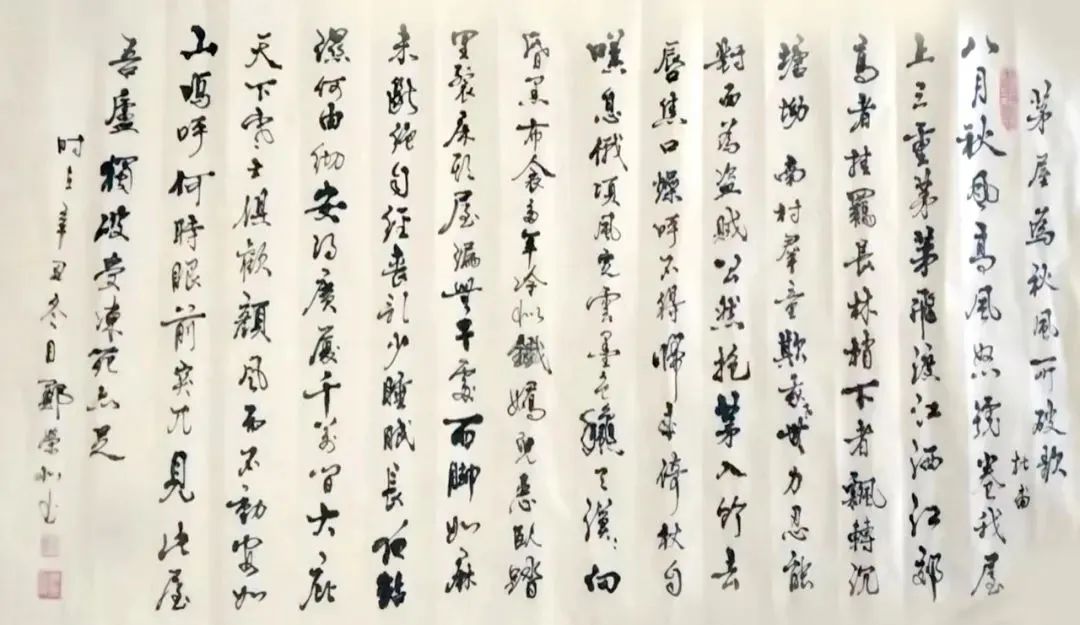 茅屋為秋風所破歌
杜甫
八月秋風高風怒號卷我屋
上三重茅茅飛渡江洒江郊
高者挂罥長林梢下者飄轉沉
塘坳南村羣童欺我老無力忍能
對面為盗賊公然抱茅入竹去
唇焦口燥呼不得歸來倚杖自
嘆息俄頃風定雲墨色秋天漠漠向
昏黑布衾多年冷似鐵嬌兒惡臥踏
里裂床頭屋漏無干處雨脚如麻
未斷絕自經喪亂少睡眠長夜沾
濕何由徹安得廣厦千萬間大庇
天下寒士俱歡顏風雨不動安如
山嗚呼何時眼前突兀見此屋
吾廬獨破受凍死亦足
时在辛丑冬月鄭榮